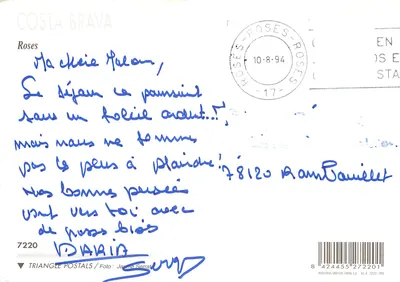 COSTA BRAVA
Roses
ROSES-ROSES-ROSES
10-8-94
-17-
EN
OS E
STA
Le séjour se poursuit
sous un soleil ardent..!
mais nous ne sommes
pas les plus à plaindre!
Nos bonnes pensées
vont vers toi avec
de gros bisos
DARIA
Serge
78120 Rambouillet
7220
▼ TRIANGLE POSTALS / Foto :
8 424455 272201